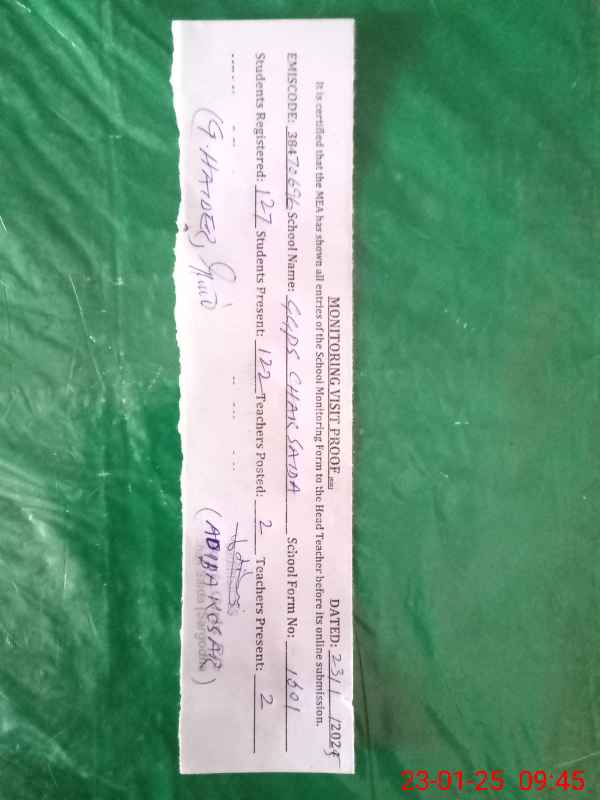 MONITORING VISIT PROOF DATED: 23/1/2025
It is certified that the MEA has shown all entries of the School Monitoring Form to the Head Teacher before its online submission.
EMISCODE: 38470696 School Name: GGPS CHAK SAIDA School Form No: 1601
Students Registered: 127 Students Present: 122 Teachers Posted: 2 Teachers Present: 2
(G. HAIDER)
(ADIBA KOSAR)
23-01-25 09:45